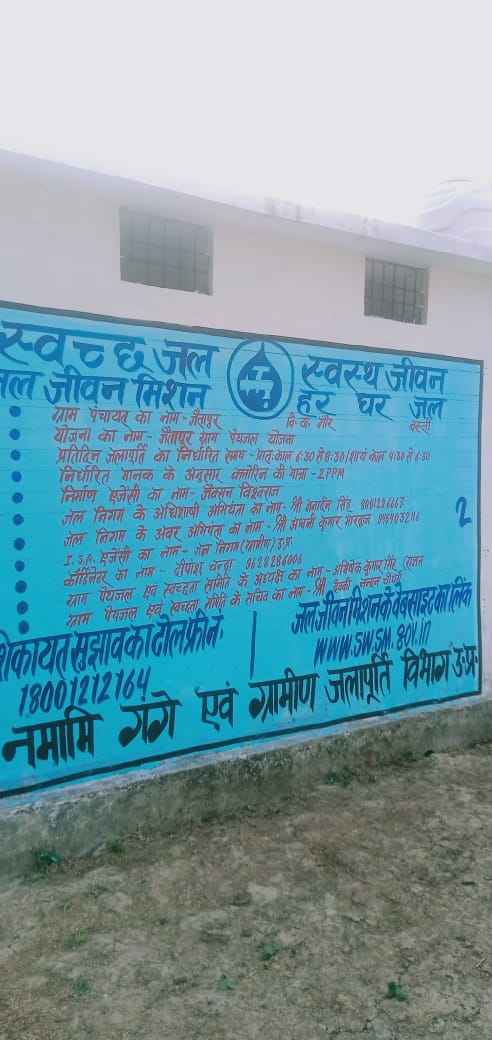 स्वच्छ जल स्वस्थ जीवन
जल जीवन मिशन हर घर जल
ग्राम पंचायत का नाम - जैतापुर वि.ख. गौर बस्ती
योजना का नाम - जैतापुर ग्राम पेयजल योजना
प्रतिदिन जलापूर्ति का निर्धारित समय - प्रातः काल 6:30 से 8:30/शायं काल 4:30 से 6:30
निर्धारित मानक के अनुसार क्लोरिन की मात्रा - 2PPM
निर्माण एजेंसी का नाम - जैक्सन विश्वराज
जल निगम के अधिशाषी अभियंता का नाम - श्री जनार्दन सिंह 8081296667
जल निगम के अवर अभियंता का नाम - श्री अश्वनी कुमार 9454032116
I.S.A. एजेंसी का नाम - जल निगम (ग्रामीण) उ.प्र.
कॉर्डिनेटर का नाम - दीपांश चन्द्रा 9628286006
ग्राम पेयजल एवं स्वच्छता समिति के अध्यक्ष का नाम - अभिषेक कुमार सिंह (राजन
ग्राम पेयजल एवं स्वच्छता समिति के सचिव का नाम - श्री देवकी नन्दन चौधरी
2
शिकायत सुझाव का टोल फ्री नं. जल जीवन मिशन के वेबसाइट का लिंक
18001212164 www.swsm.gov.in
नमामि गंगे एवं ग्रामीण जलापूर्ति विभाग उ.प्र.